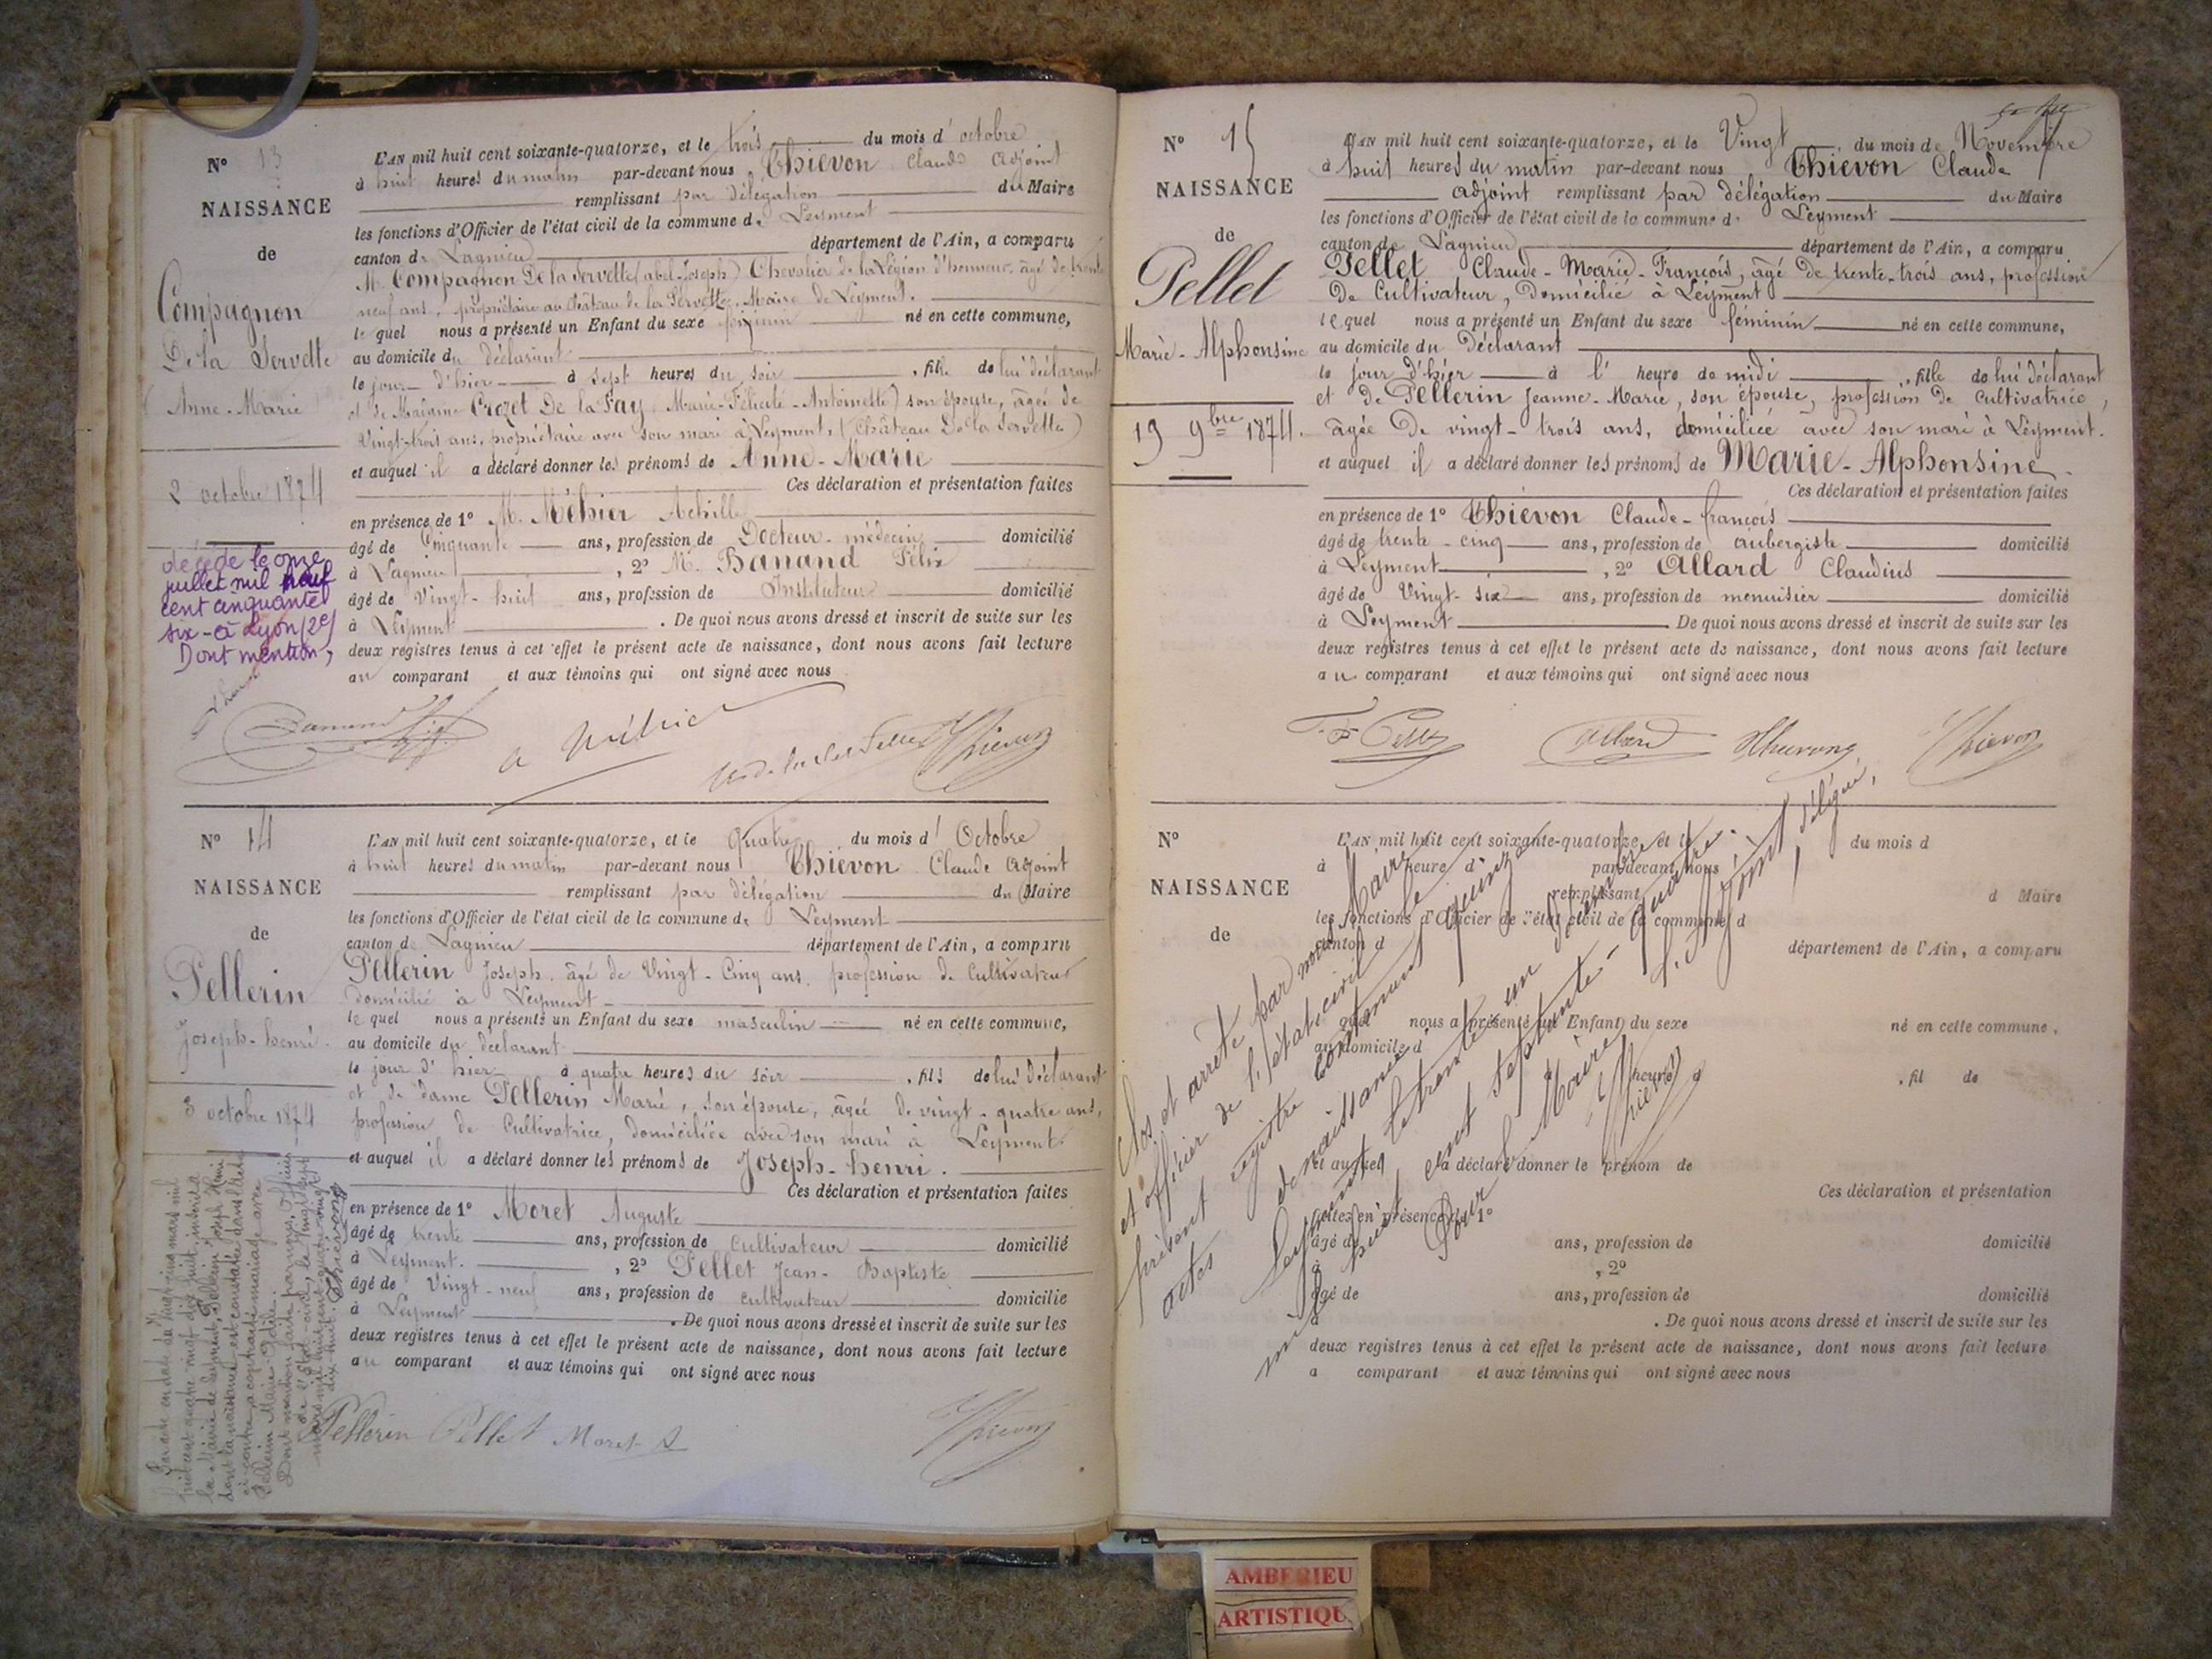 N° 13
NAISSANCE
de
Compagnon
De la Servette
(Anne-Marie)
2 octobre 1874
décédé le onze
juillet mil neuf
cent cinquante
six - à Lyon (2e)
Dont mention,
L'AN mil huit cent soixante-quatorze, et le trois du mois d'octobre
à huit heures du matin par-devant nous Thiévon Claude Adjoint
remplissant par délégation du Maire
les fonctions d'Officier de l'état civil de la commune de Leyment
canton de Lagnieu département de l'Ain, a comparu
M. Compagnon De la Servette (abel-Joseph) Chevalier de la Légion d'honneur, âgé de trente
neuf ans, propriétaire au château de la Servette, Maire de Leyment.
lequel nous a présenté un Enfant du sexe féminin né en cette commune,
au domicile du déclarant
le jour d'hier à sept heures du soir, fille de lui déclarant
et de Madame Crozet De la Fay (Marie-Félicité-Antoinette) son épouse, âgée de
Vingt-trois ans, propriétaire avec son mari à Leyment, (Château De la Servette)
et auquel il a déclaré donner les prénoms de Anne-Marie
Ces déclaration et présentation faites
en présence de 1° M. Méhier Achille
âgé de Cinquante ans, profession de Docteur-médecin domicilié
à Lagnieu, 2° M. Banand Félix
âgé de Vingt-huit ans, profession de Instituteur domicilié
à Leyment. De quoi nous avons dressé et inscrit de suite sur les
deux registres tenus à cet effet le présent acte de naissance, dont nous avons fait lecture
au comparant et aux témoins qui ont signé avec nous
a Méhier Thievon
N° 14
NAISSANCE
de
Pellerin
Joseph-henri
3 octobre 1874
L'AN mil huit cent soixante-quatorze, et le Quatre du mois d'Octobre
à huit heures du matin par-devant nous Thiévon Claude Adjoint
remplissant par délégation du Maire
les fonctions d'Officier de l'état civil de la commune de Leyment
canton de Lagnieu département de l'Ain, a comparu
Pellerin Joseph, âgé de Vingt-Cinq ans, profession de Cultivateur
domicilié à Leyment
lequel nous a présenté un Enfant du sexe masculin né en cette commune,
au domicile du déclarant
le jour d'hier à quatre heures du soir, fils de lui déclarant
et de dame Pellerin Marie, son épouse, âgée de vingt-quatre ans,
profession de Cultivatrice, domiciliée avec son mari à Leyment
et auquel il a déclaré donner les prénoms de Joseph-henri.
Ces déclaration et présentation faites
en présence de 1° Moret Auguste
âgé de trente ans, profession de Cultivateur domicilié
à Leyment., 2° Pellet Jean-Baptiste
âgé de Vingt-neuf ans, profession de cultivateur domicilié
à Leyment. De quoi nous avons dressé et inscrit de suite sur les
deux registres tenus à cet effet le présent acte de naissance, dont nous avons fait lecture
au comparant et aux témoins qui ont signé avec nous
Pellerin Pellet Moret A Thievon
la Mairie de Leyment, Pellerin Joseph Henri
dont la naissance est constatée dans l'acte
ci-contre a contracté mariage avec
Pellerin Marie-Odile.
Dont mention faite par nous, Officier
de l'état-civil, le vingt sept
mars mil huit cent quatre vingt
dix huit. Thiévon
N° 15
NAISSANCE
de
Pellet
Marie-Alphonsine
19 9bre 1874.
L'AN mil huit cent soixante-quatorze, et le Vingt du mois de Novembre
à huit heures du matin par-devant nous Thiévon Claude
adjoint remplissant par délégation du Maire
les fonctions d'Officier de l'état civil de la commune de Leyment
canton de Lagnieu département de l'Ain, a comparu
Pellet Claude-Marie-François, âgé de trente-trois ans, profession
De Cultivateur, Domicilié à Leyment
lequel nous a présenté un Enfant du sexe féminin né en cette commune,
au domicile du Déclarant
le jour d'hier à l'heure de midi, fille de lui déclarant
et De Pellerin Jeanne-Marie, son épouse, profession De Cultivatrice,
âgée De vingt-trois ans, domiciliée avec son mari à Leyment.
et auquel il a déclaré donner les prénoms de Marie-Alphonsine.
Ces déclaration et présentation faites
en présence de 1° Thiévon Claude-françois
âgé de trente-cinq ans, profession de aubergiste domicilié
à Leyment, 2° Allard Claudius
âgé de Vingt-six ans, profession de menuisier domicilié
à Leyment. De quoi nous avons dressé et inscrit de suite sur les
deux registres tenus à cet effet le présent acte de naissance, dont nous avons fait lecture
au comparant et aux témoins qui ont signé avec nous
Allard Thievon
N°
NAISSANCE
de
L'AN mil huit cent soixante-quatorze, et le du mois d
à heure d par-devant nous
remplissant d Maire
les fonctions d'Officier de l'état civil de la commune d
canton d département de l'Ain, a comparu
quel nous a présenté un Enfant du sexe né en cette commune,
au domicile d
à heure d, fil de
et auquel a déclaré donner le prénom de
Ces déclaration et présentation
faites en présence de 1°
âgé de ans, profession de domicilié
à, 2°
âgé de ans, profession de domicilié
à. De quoi nous avons dressé et inscrit de suite sur les
deux registres tenus à cet effet le présent acte de naissance, dont nous avons fait lecture
a comparant et aux témoins qui ont signé avec nous
Clos et arrêté par nous Maire
et officier de l'état civil le
présent registre contenant quinze
actes de naissance
Leyment le trente un Décembre
mil huit cent septante-quatre.
Pour le Maire, l'Adjoint délégué,
Thievon
AMBERIEU
ARTISTIQUE